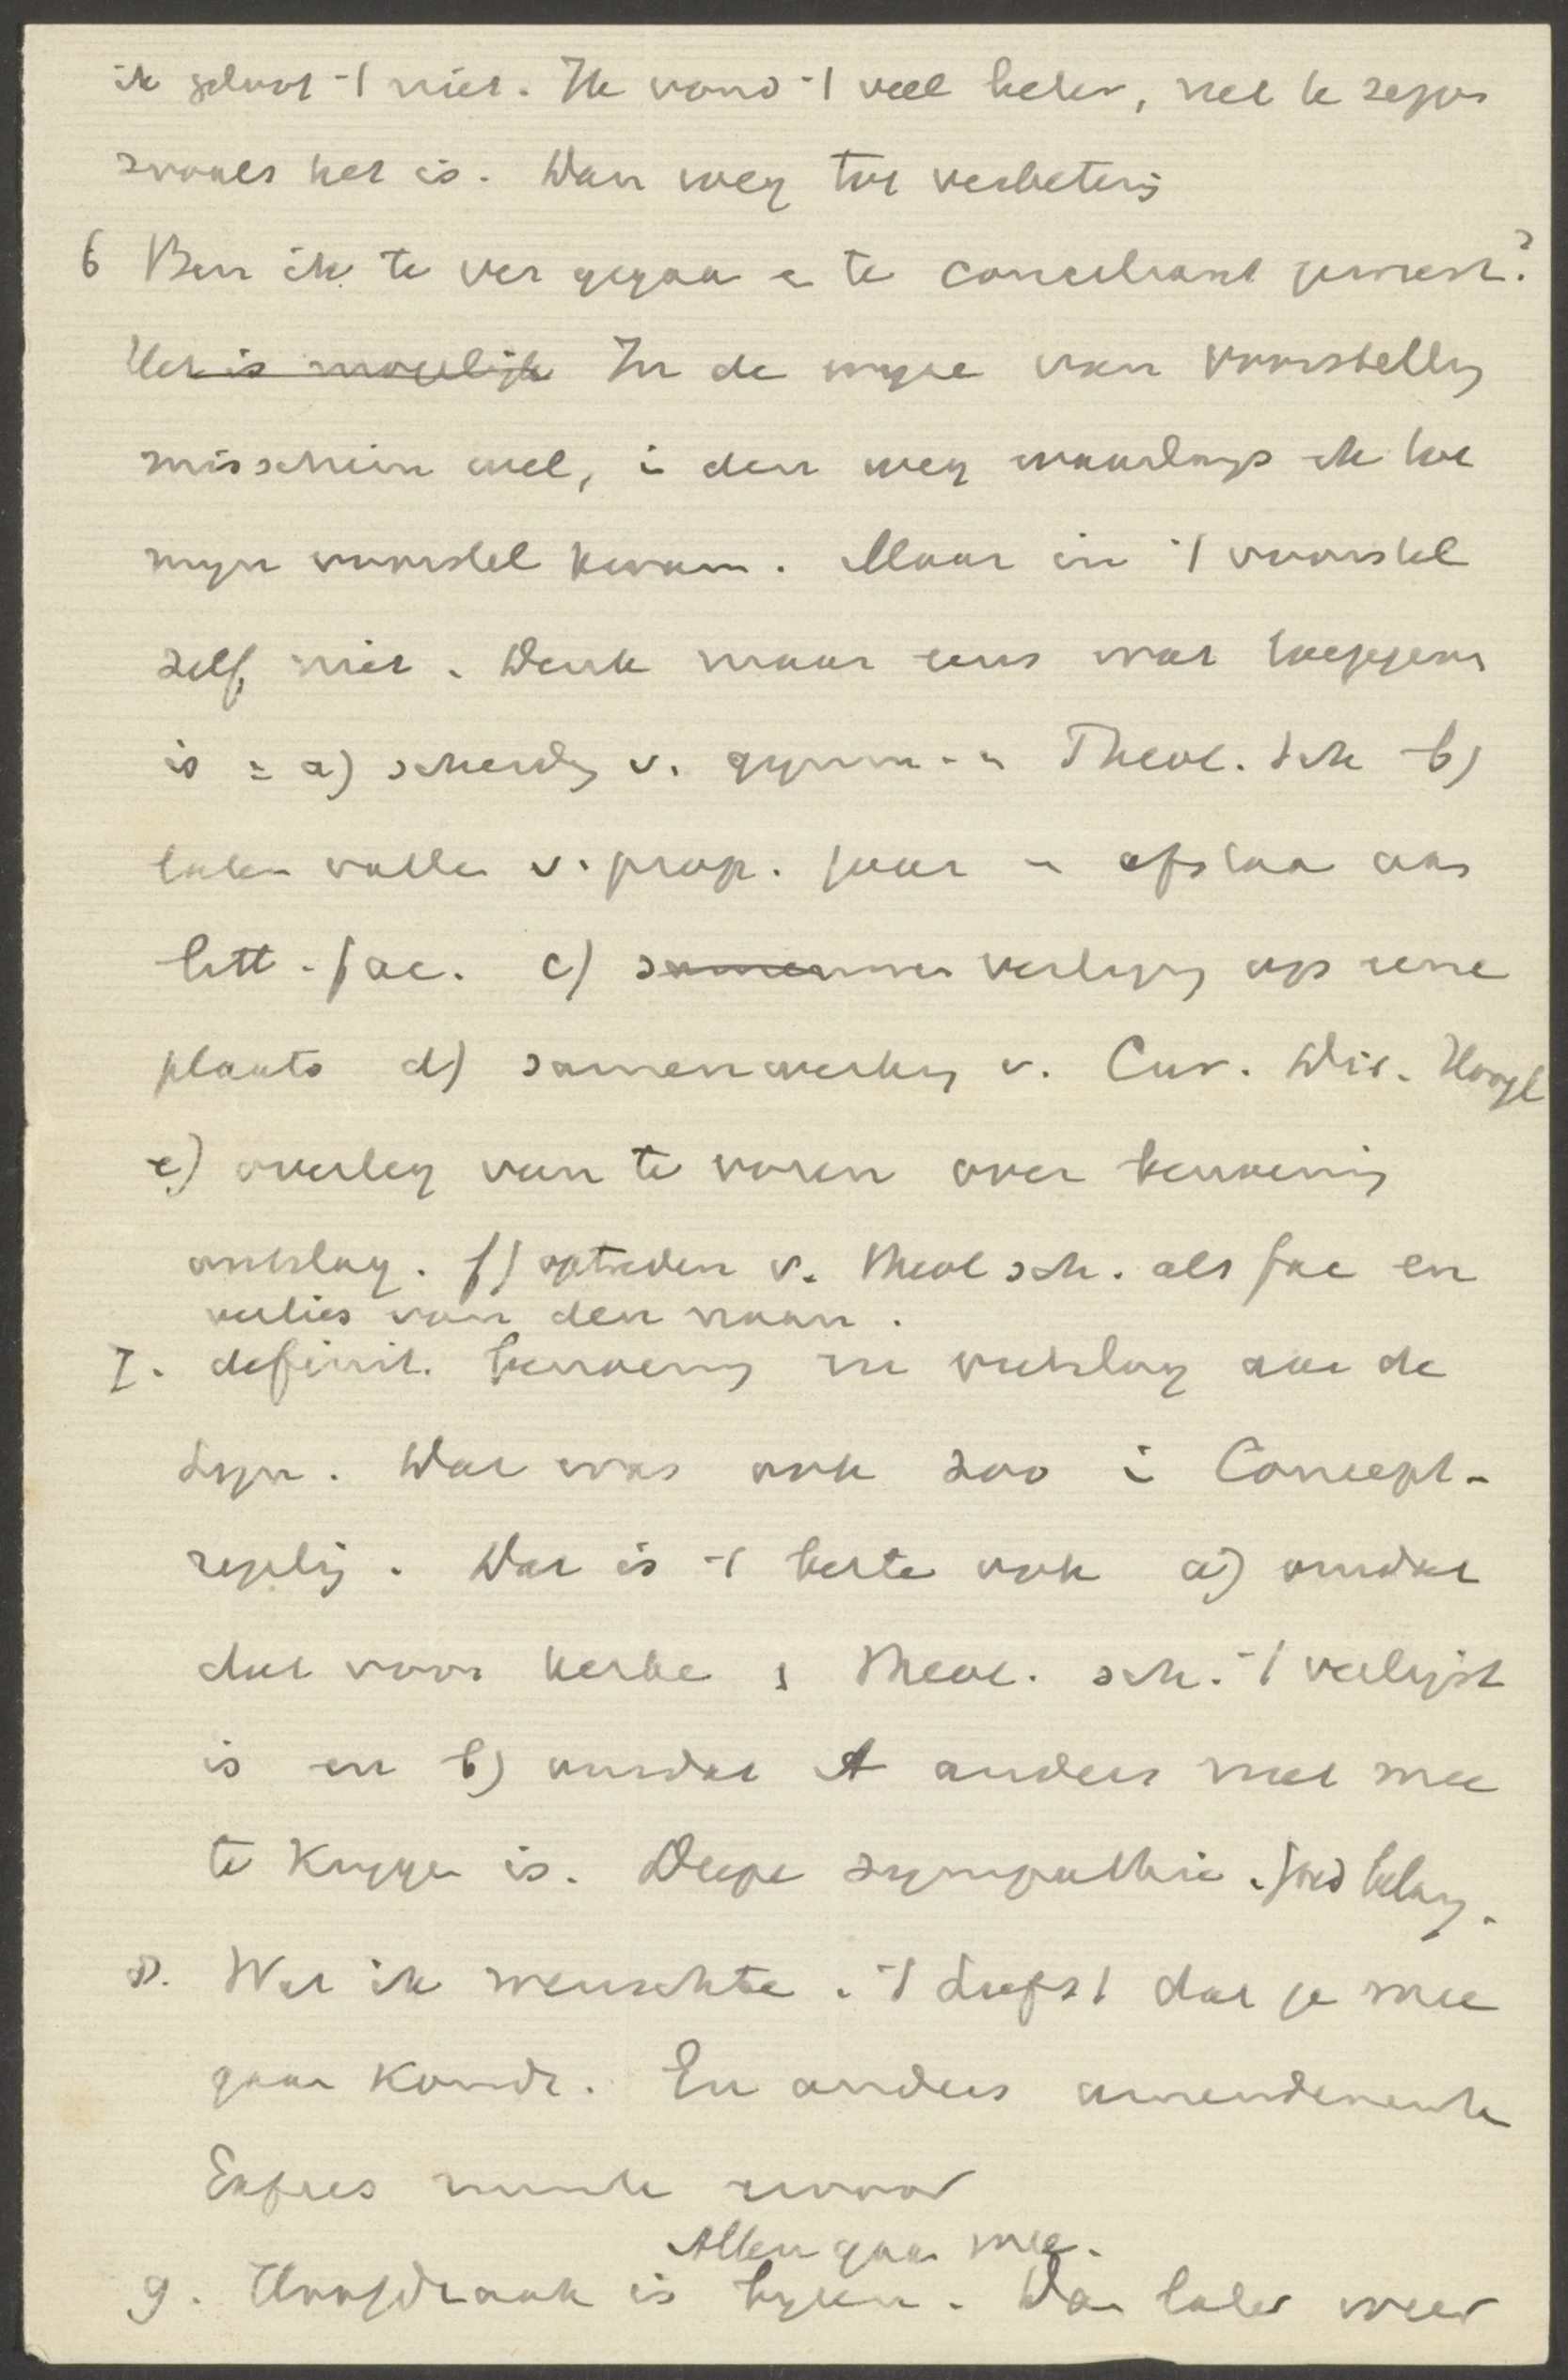 ik geloof 't niet. Ik vond 't veel beter, net te zeggen
zooals het is. Dan weg tot verbetering
6 Ben ik te ver gegaan en te conciliant geweest?
Het is mogelijk In de wyze van voorstelling
misschien wel, in den weg waarlangs ik tot
myn voorstel kwam. Maar in 't voorstel
zelf niet. Denk maar eens wat toegegeven
is = a) scheiding v. gymn. en Theol. Sch b)
laten vallen v. prop. jaar en afstaan aan
litt. fac. c) verlegging op eene
plaats d) samenwerking v. Cur. Dir. Hoogl
e) overleg van te voren over benoeming
ontslag. f) optreden v. Theol sch. als fac en
verlies van den naam.
7. definit. benoeming en ontslag aan de
Syn. Dat was ook zoo in Concept-
regeling. Dat is 't beste ook a) omdat
dat voor kerke en Theol. sch. 't veiligst
is en b) omdat A anders niet mee
te krygen is. Diepe sympathie.
8. Wat ik wenschte. 't Liefst dat je mee
gaan kondt. En anders amendementen
Expres ruimte
Allen gaan mee.
9. Hoofdzaak is byeen. Dan later weer